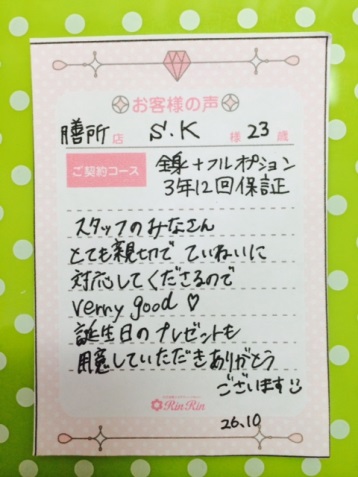 お客様の声
膳所店 S.K 様 23歳
ご契約コース
全身+フルオプション
3年12回保証
スタッフのみなさん
とても親切で ていねいに
対応してくださるので
verny good ♡
誕生日のプレゼントも
用意していただきありがとう
ございます
RinRin
26.10